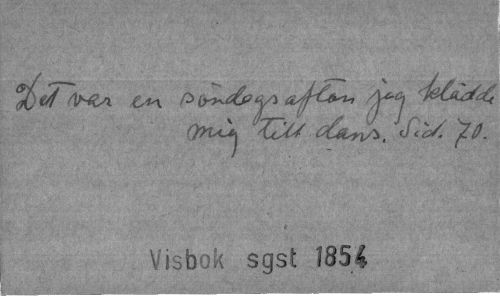 Det var en söndagsafton jag klädde
mig till dans. Sid. 70.
Visbok sgst 1854